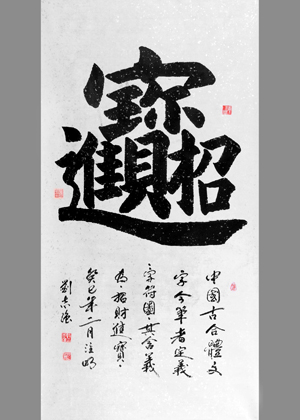 招財進寶
中國古合體文
字今單者定義
字符圖其含義
為:招財進寶.
癸巳年二月注明
劉志